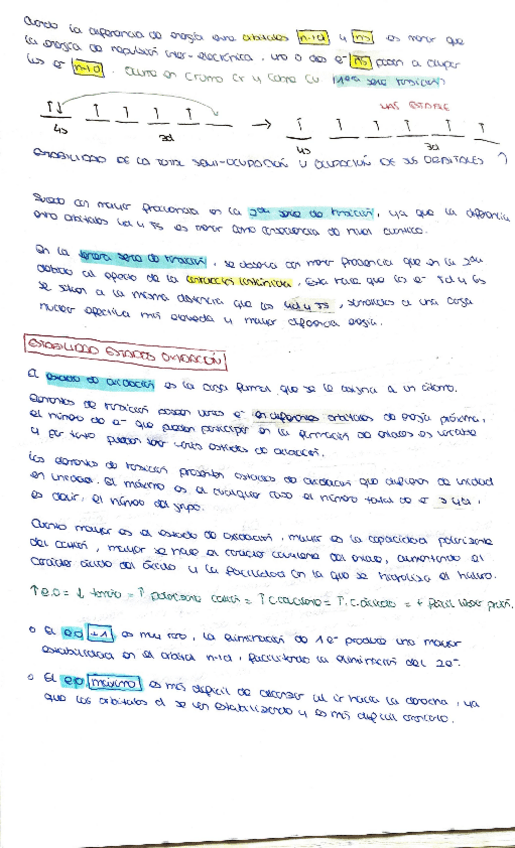 Cuando la diferencia de energía entre orbitales n-1d y ns es menor que
la energía de repulsión inter-electrónica, uno o dos e⁻ ns pasan a ocupar
los e⁻ n-1d. Ocurre en Cromo Cr y Cobre Cu 1era serie transición
MÁS ESTABLE
4s 3d → 4s 3d
ESTABILIDAD DE LA TOTAL SEMI-OCUPACIÓN U OCUPACIÓN DE LOS ORBITALES
Sucede con mayor frecuencia en la 2da serie de transición, ya que la diferencia
entre orbitales 4d y 5s es menor como consecuencia del nivel cuántico.
En la tercera serie de transición, se observa con menor presencia que en la 2da
debido al efecto de la contracción lantánida. Esta hace que los e⁻ 5d y 6s
se sitúen a la misma distancia que los 4d y 5s, sometidos a una carga
nuclear efectiva más elevada y mayor diferencia energía.
ESTABILIDAD ESTADOS OXIDACIÓN
El estado de oxidación es la carga formal que se le asigna a un átomo.
Elementos de transición poseen varios e⁻ en diferentes orbitales de energía próxima,
el número de e⁻ que pueden participar en la formación de enlaces es variable
y por tanto pueden tener varios estados de oxidación.
Los elementos de transición presentan estados de oxidación que difieren de unidad
en unidad. El máximo es en cualquier caso el número total de e⁻
es decir, el número del grupo.
Cuanto mayor es el estado de oxidación, mayor es la capacidad polarizante
del catión, mayor se hace el carácter covalente del enlace, aumentando el
carácter ácido del óxido y la facilidad con la que se hidroliza el haluro.
↑e.o = ↓ tamaño = ↑ polarizante catión = ↑ C.covalente = ↑ C.ácido = + fácil
o El e.o +1 es muy raro, la eliminación de 1e⁻ produce una mayor
estabilidad en el orbital n-1d, facilitando la eliminación del 2e⁻.
o El e.o máximo es más difícil de alcanzar al ir hacia la derecha, ya
que los orbitales d se van estabilizando y es más difícil